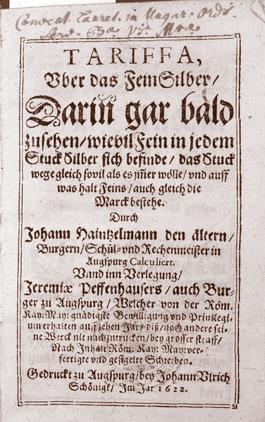 Convent. Lauret. in Ungar. Ord.
TARIFFA,
Vber das Fein Silber/
Darin gar bald
zusehen/ wievil Fein in jedem
Stuck Silber sich befinde/ das Stuck
wege gleich sovil als es jmer wölle/ vnd auff
was halt Feins/ auch gleich die
Marck bestehe.
Durch
Johann Haintzelmann den ältern/
Burgern/ Schůl- vnd Rechenmeister in
Augspurg Calculiert.
Vand inn Verlegung/
Jeremiæ Peffenhausers/ auch Bur-
ger zu Augspurg/ Welcher von der Röm.
Kay: May: gnädigste Bewilligung vnd Privilegi-
um erhalten auff zehen Jar/ diß/ noch andere sei-
ne Werck nit nachzutrucken/ bey grosser straff/
Nach Inhalt Röm: Kay: May: ver-
fertigte vnd gesigelte Schreiben.
Gedruckt zu Augspurg/ bey Johann Vlrich
Schönigk/ Im Jar 1622.